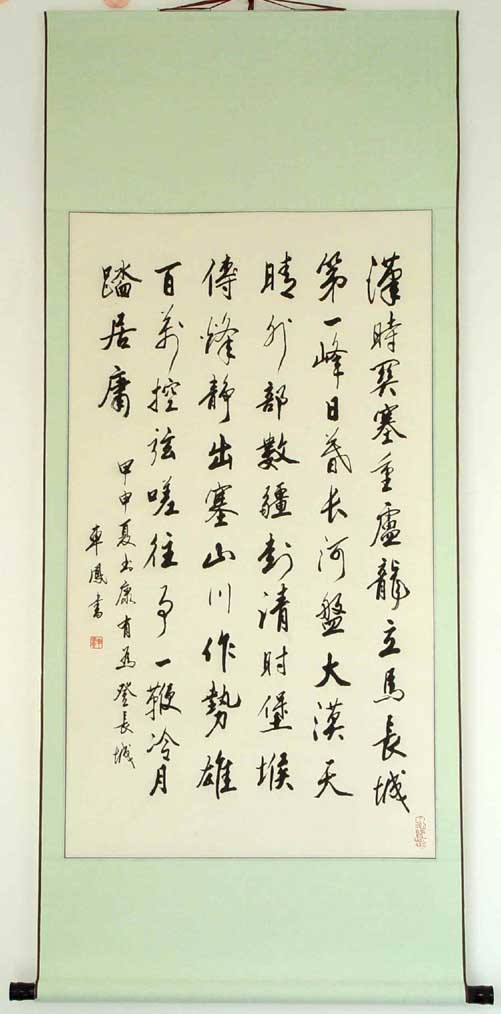 漢時関塞重盧龍立馬長城
第一峰日暮长河盤大漠天
晴外部數疆封清時堡堠
傳烽靜出塞山川作勢雄
百萬控弦嗟往事一鞭冷月
踏居庸
甲申夏书康有為登長城
車鳳書